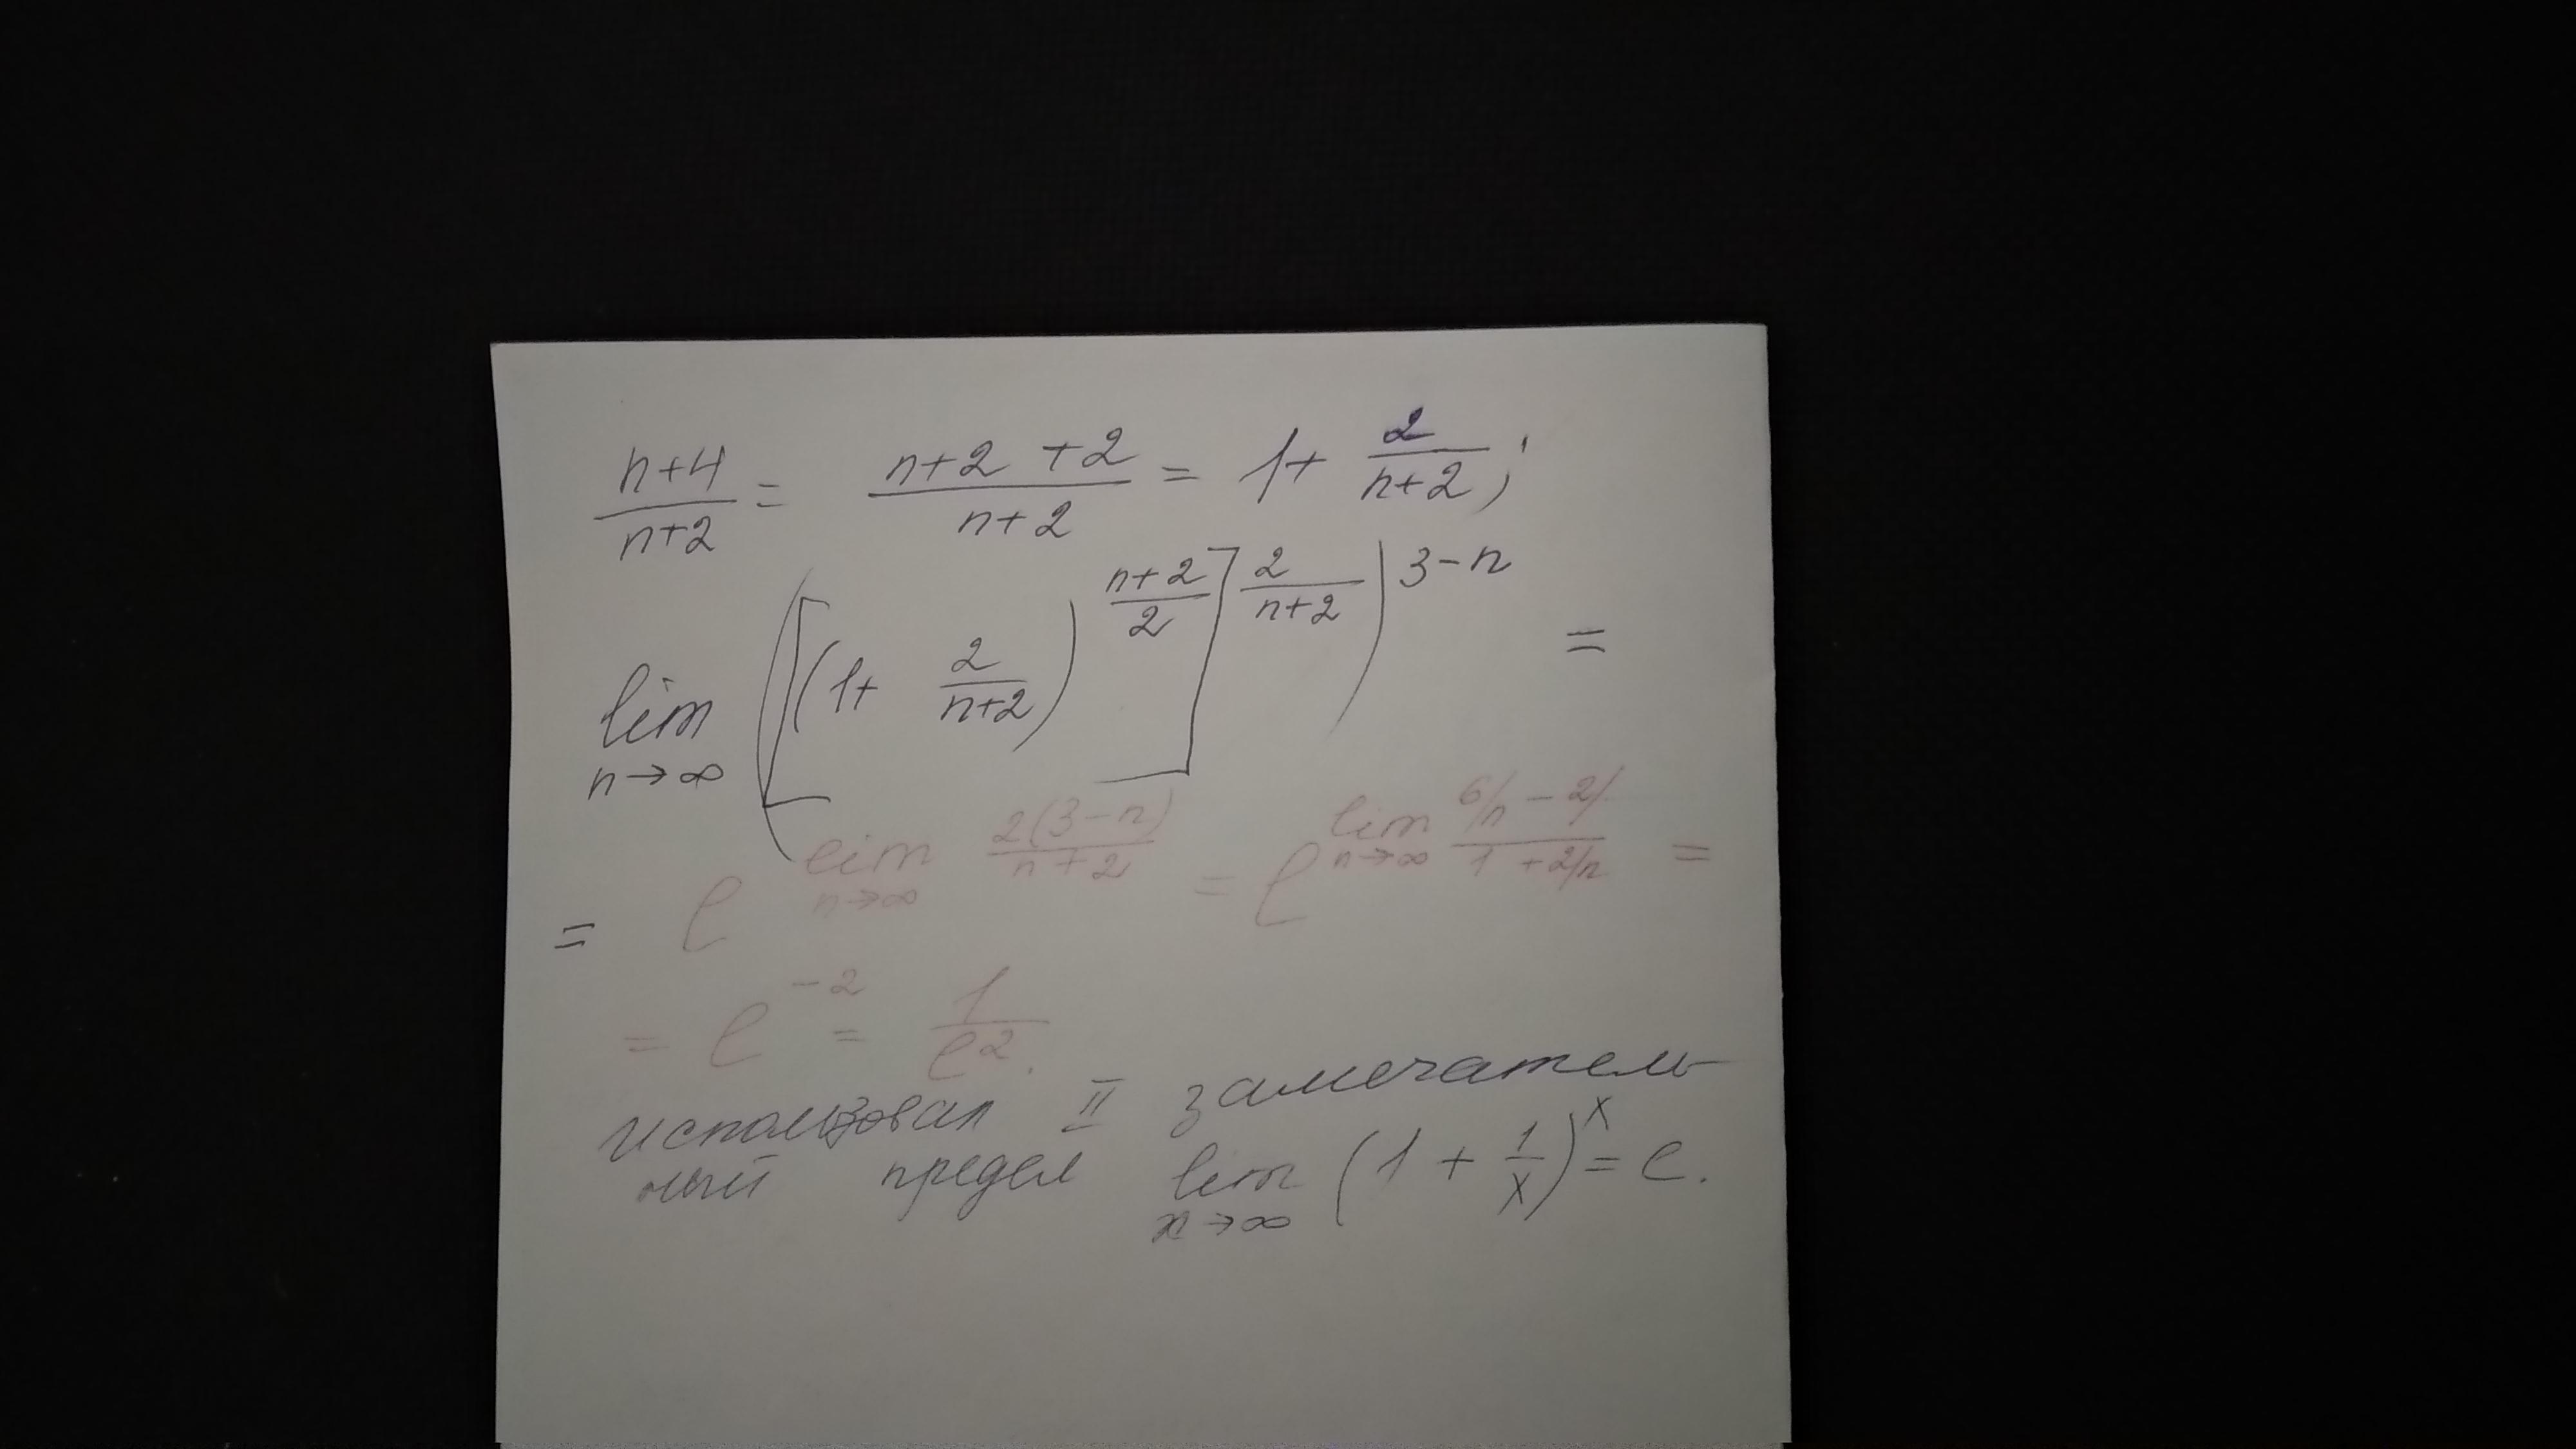 (n+4)/(n+2) = (n+2 +2)/(n+2) = 1+ 2/(n+2);
lim n→∞ ([(1+ 2/(n+2))^((n+2)/2)]^(2/(n+2)))^(3-n) =
= e^(lim n→∞ 2(3-n)/(n+2)) = e^(lim n→∞ (6/n - 2)/(1 + 2/n)) =
= e^(-2) = 1/e^2.
использовал II замечатель
ный предел lim x→∞ (1 + 1/x)^x = e.